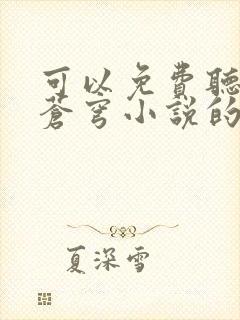 可以免費聽
蒼穹小說的
夏深雪